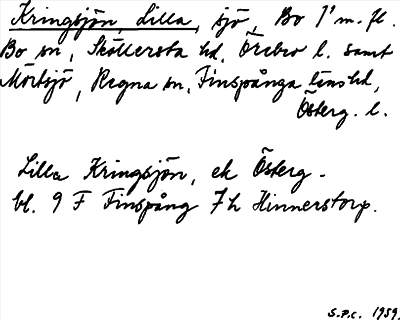 Kringsjön, Lilla, sjö, Bo 1¹ m. fl.
Bo sn, Sköllersta hd, Örebro l. samt
Mörtsjö, Regna sn, Finspånga länshd,
Österg. l.
Lilla Kringsjön, ek Österg -
bl. 9 F Finspång 7h Hinnerstorp.
S.P.C. 1959.